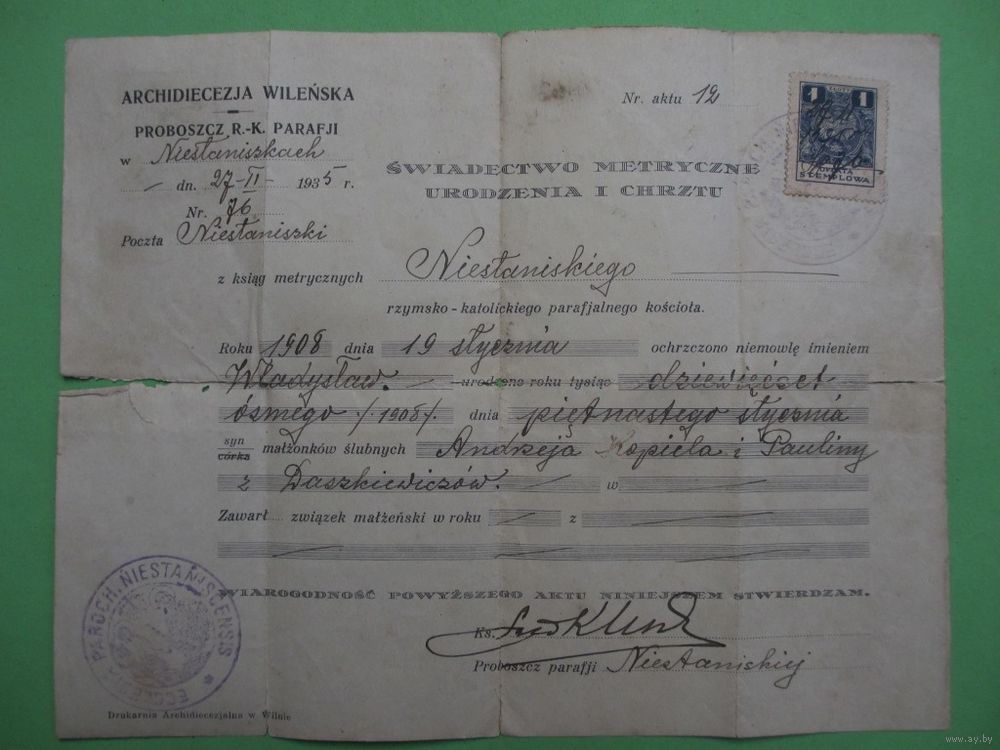 ARCHIDIECEZJA WILEŃSKA
PROBOSZCZ R.-K. PARAFJI
w Niestaniszkach
dn. 27-II- 1935 r.
Nr. 76
Poczta Niestaniszki
Nr. aktu 12
1 ZŁOTY 1
OPŁATA
STEMPLOWA
ŚWIADECTWO METRYCZNE
URODZENIA I CHRZTU
z ksiąg metrycznych Niestaniskiego
rzymsko-katolickiego parafjalnego kościoła.
Roku 1908 dnia 19 stycznia ochrzczono niemowlę imieniem
Władysław. urodzone roku tysiąc dziewięćset
ósmego /1908/. dnia piętnastego stycznia
syn
córka małżonków ślubnych Andrzeja Kopiela i Pauliny
z Daszkiewiczów. w
Zawarł związek małżeński w roku z
WIAROGODNOŚĆ POWYŻSZEGO AKTU NINIEJSZEM STWIERDZAM.
Ks.
Proboszcz parafji Niestaniskiej
PAROCH. NIESTANISCENSIS
Drukarnia Archidiecezjalna w Wilnie
www.ay.by